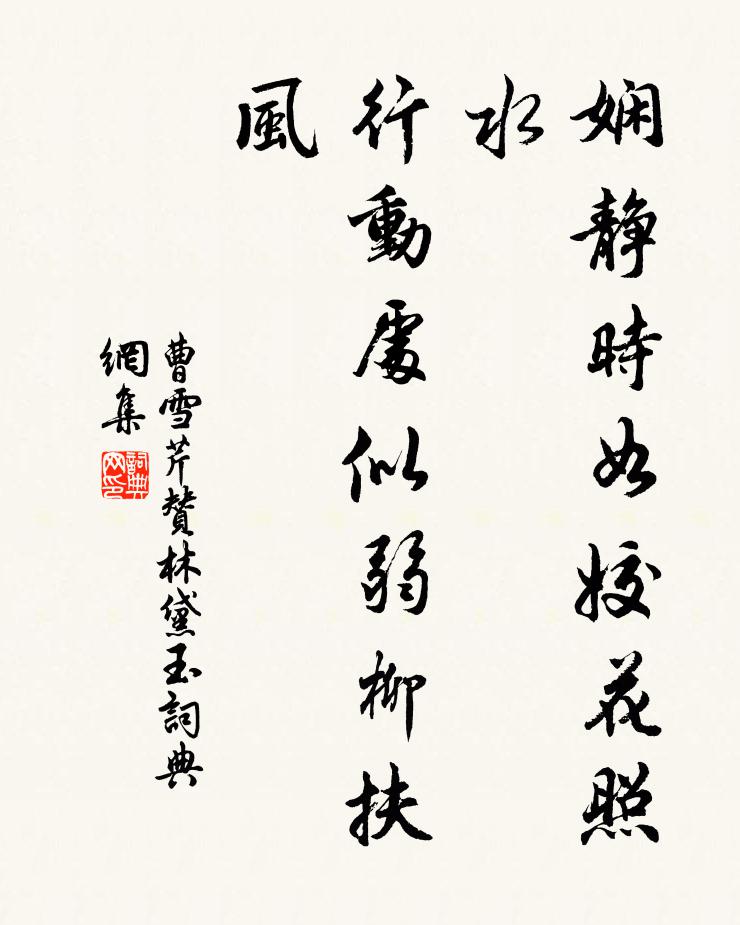 嫻靜時如姣花照
水
行動處似弱柳扶
風
曹雪芹贊林黛玉詞典
網集
詞典
网印